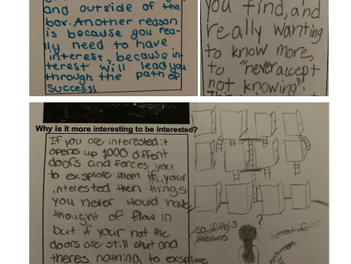 and outside of the
box. Another reason
is because you rea-
lly need to have
interest, because in
terest will lead you
through the path of
success!
you find, and
really wanting
to know more,
to "never accept
not knowing".
Why is it more interesting to be interested?
If you are interested it
opens up 1000 diffent
doors and forces you
to exsplore them if your
interested then things
you never would have
thought of flow in
but if your not the
doors are still shut and
theres nothing to exsplore
?
so if this
means